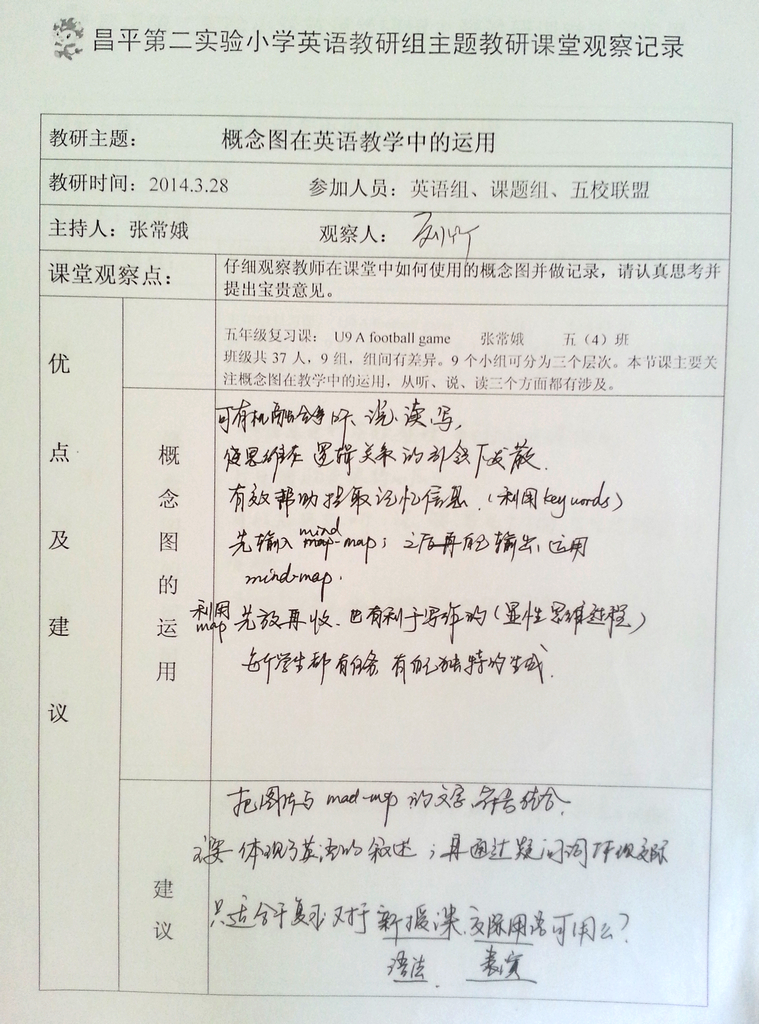 昌平第二实验小学英语教研组主题教研课堂观察记录
教研主题： 概念图在英语教学中的运用
教研时间：2014.3.28 参加人员：英语组、课题组、五校联盟
主持人：张常娥 观察人：
课堂观察点：
仔细观察教师在课堂中如何使用的概念图并做记录，请认真思考并
提出宝贵意见。
优点及建议
五年级复习课： U9 A football game 张常娥 五（4）班
班级共 37 人，9 组，组间有差异。9 个小组可分为三个层次。本节课主要关
注概念图在教学中的运用，从听、说、读三个方面都有涉及。
概念图的运用
可有机融合 听、说、读、写，
使思维在逻辑关系的引领下发散.
有效帮助提取记忆信息.（利用key words）
先输入 mind map-map；之后再自己输出、运用
mind-map.
利用map 先放再收、也有利于写作的（显性思维过程）
每个学生都有任务 有自己独特的生成.
建议
把图片与 mad-map 的文字 结合.
体现了英语的叙述；再通过疑问词体现交际
只适合于复习 对于新授课、交际用语可用么？
语法. 表演